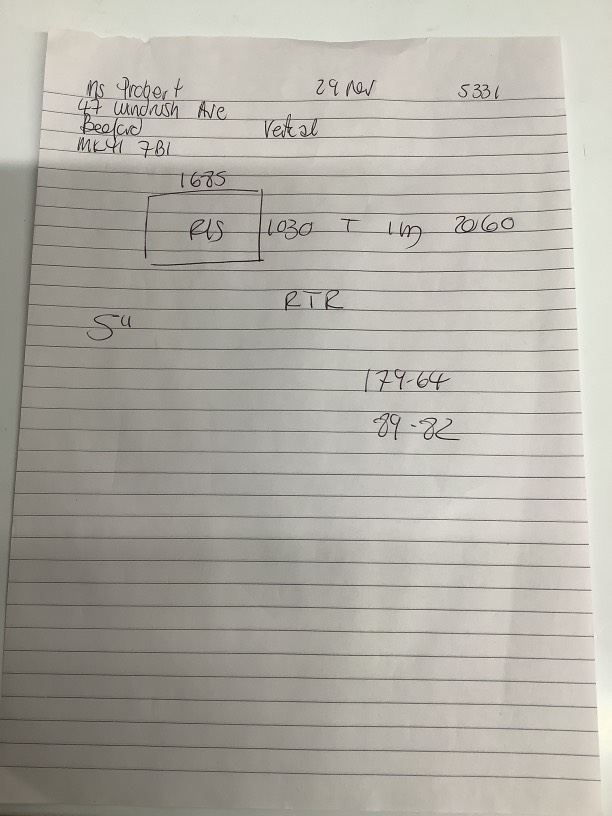 Ms Probert 29 Nov 5331
47 Windrush Ave
Bedford Vertical
MK41 7BI
1685
R/S 1030 T 1m 20160
RTR
5"
179-64
89-82